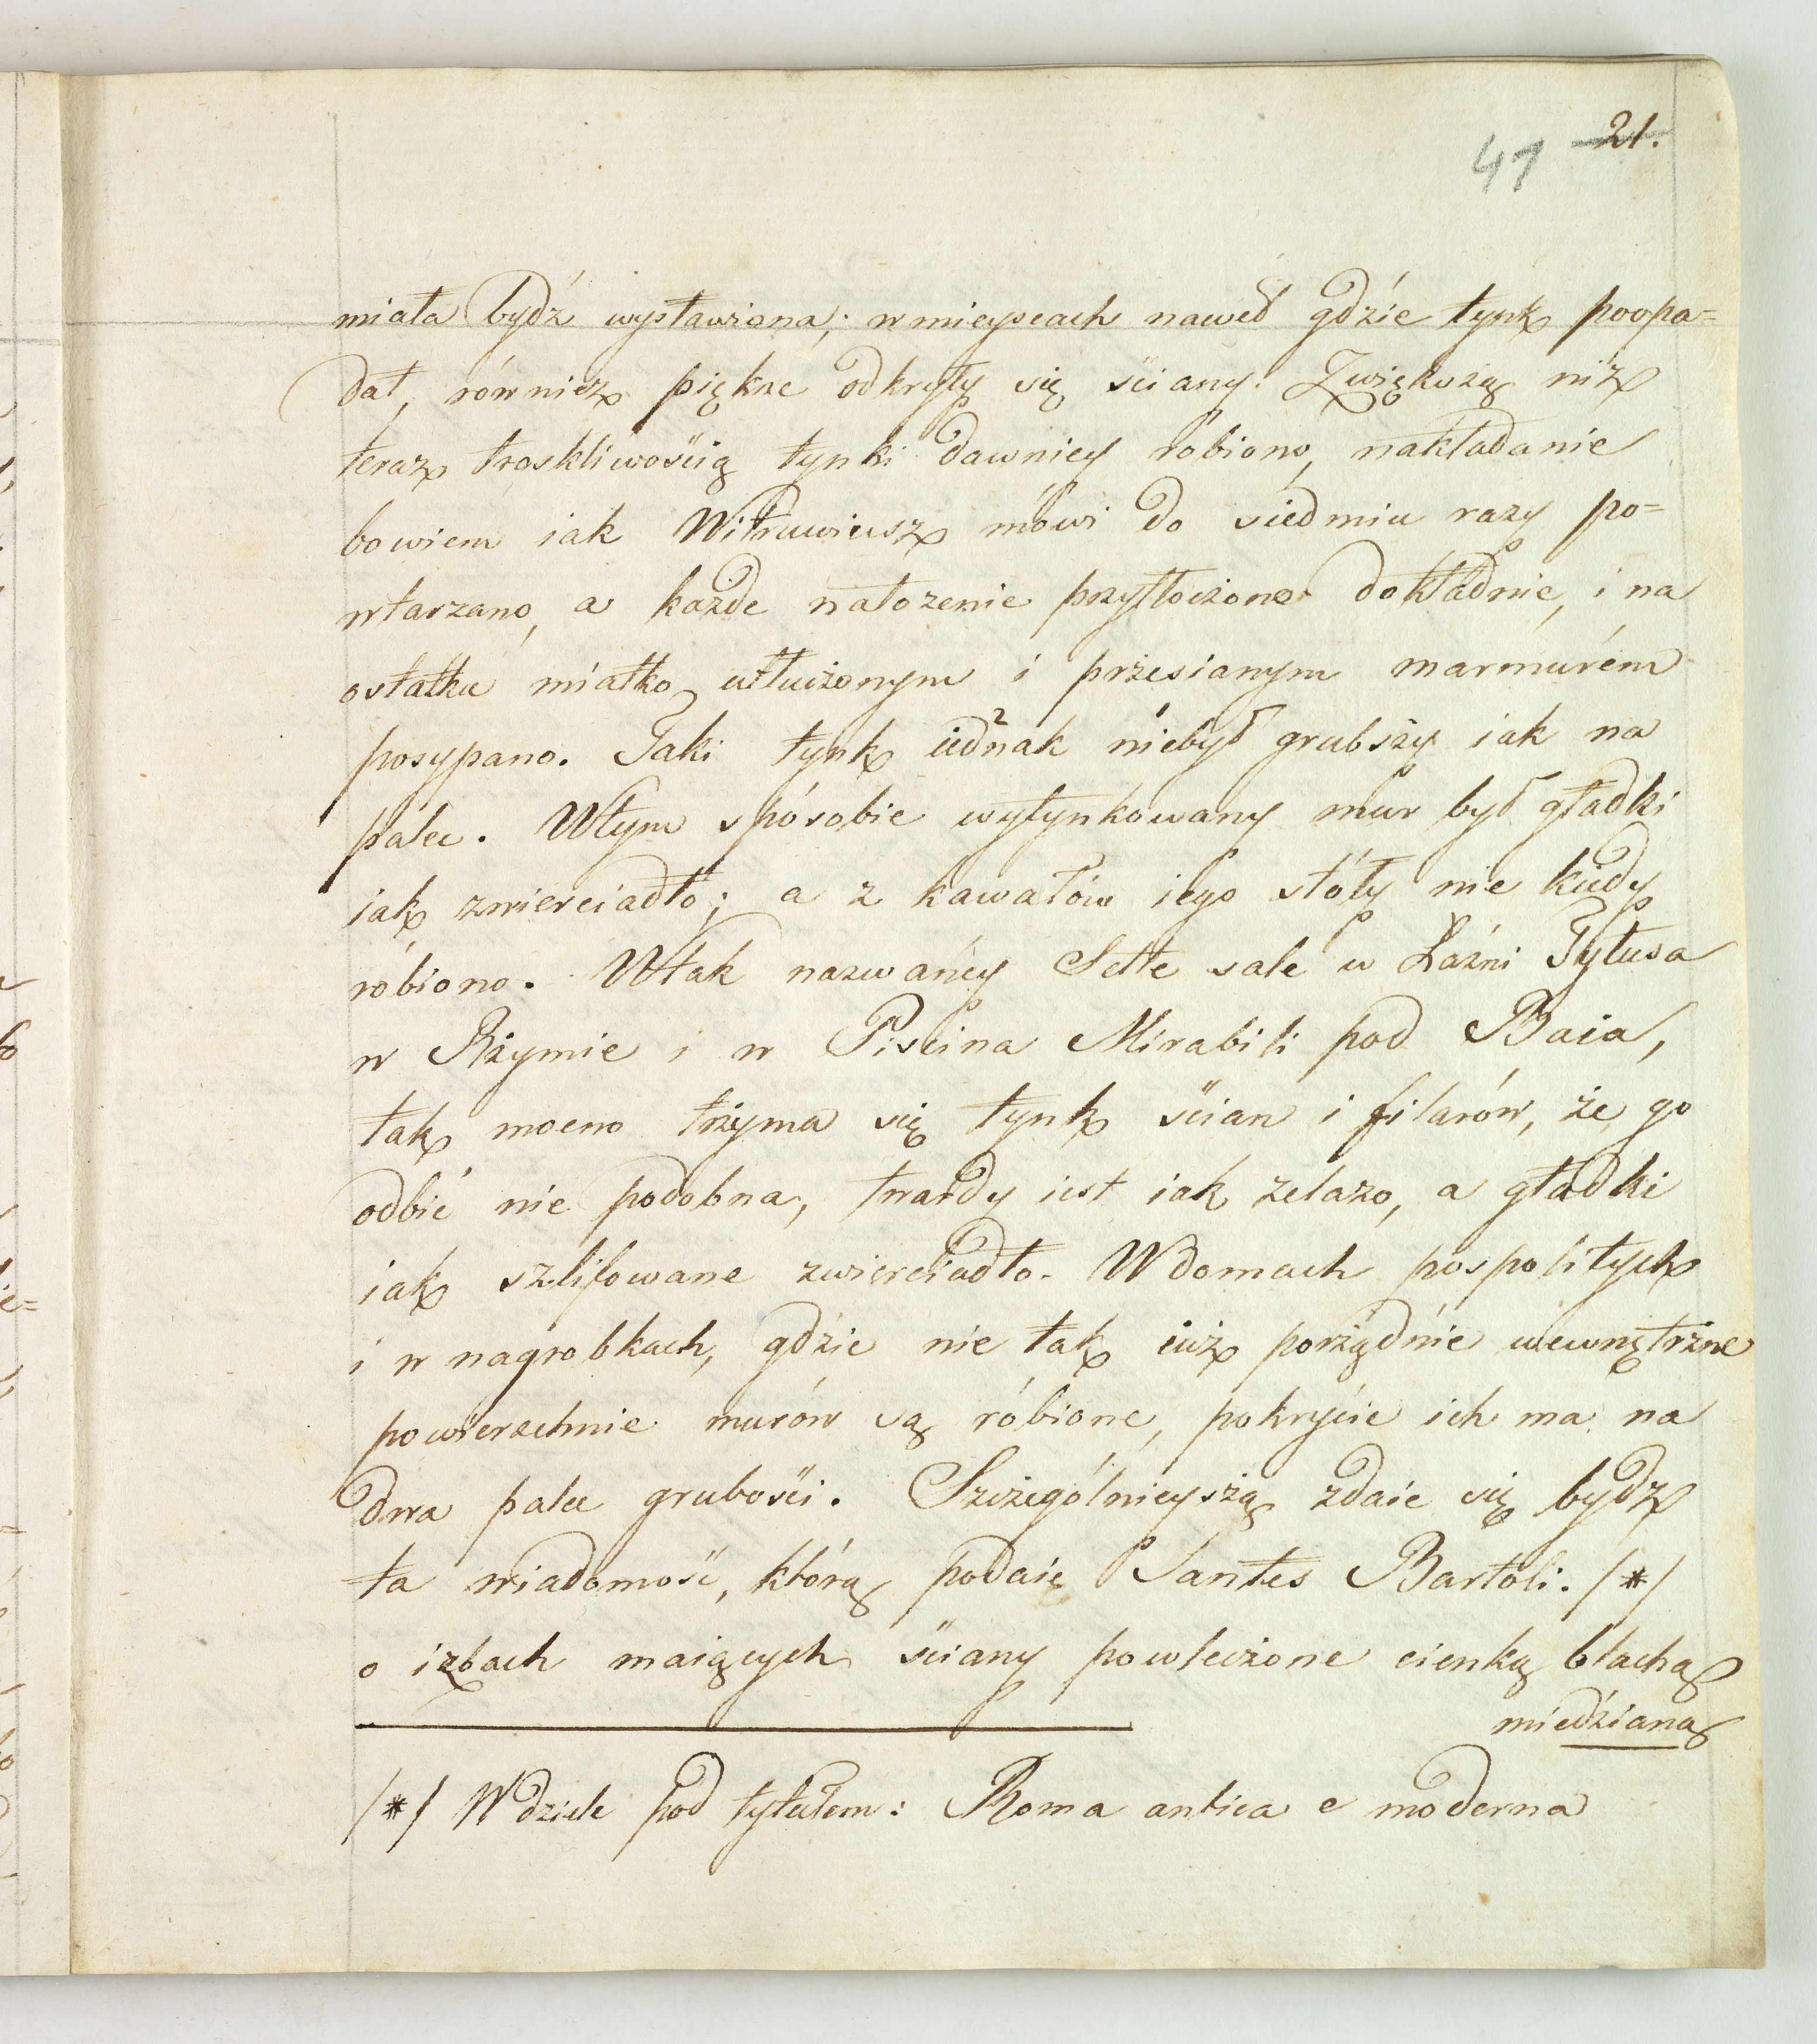 21.
41
miała bydź wystawiona; w mieyscach nawet gdzie tynk poopa=
dał, również piękne odkryły się ściany. Zwiększą niż
teraz troskliwością tynki dawniey robiono, nakładanie
bowiem iak Witruwiusz mówi do siedmiu razy po=
wtarzano, a każde nałozenie przytłoczono dokładnie, i na
ostatku miałko utłuczonym i przesianym marmurém
posypano. Taki tynk iednak niebył grubszy iak na
palec. Wtym sposobie wytynkowany mur był gładki
iak zwierciadło; a z kawałów iego stóły nie kiedy
robiono. Wtak nazwaney Sette sale w Łaźni Tytusa
w Rzymie i w Piscina Mirabili pod Baia,
tak mocno trzyma się tynk ścian i filarów, że go
odbić nie podobna, twardy iest iak zelazo, a gładki
iak szlifowane zwierciadło. W domach pospolitych
i w nagrobkach, gdzie nie tak iuż porządnie wewnętrzne
powierzchnie murów są róbione, pokrycie ich ma na
dwa palce grubości. Szczególnieyszą zdaie się bydz
ta wiadomość, którą podaie Santes Bartoli. /*/
o izbach maiących ściany powleczone cienką blachą
miedzianą
/*/ W dziele pod tytułem: Roma antica e moderna